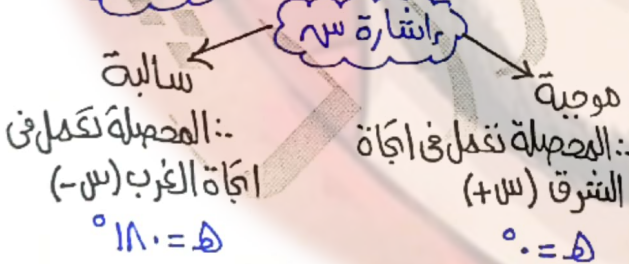 إشارة س
موجبة
∴ المحصلة تعمل في اتجاة
الشرق (س+)
هـ = ٠°
سالبة
∴ المحصلة تعمل فى
اتجاة الغرب (س-)
هـ = ١٨٠°